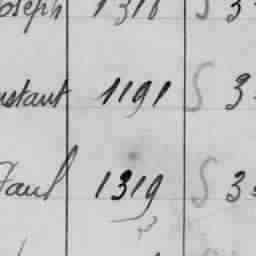 oseph 1318 S 3
nstant 1191 S 3
Paul 1319 S 3